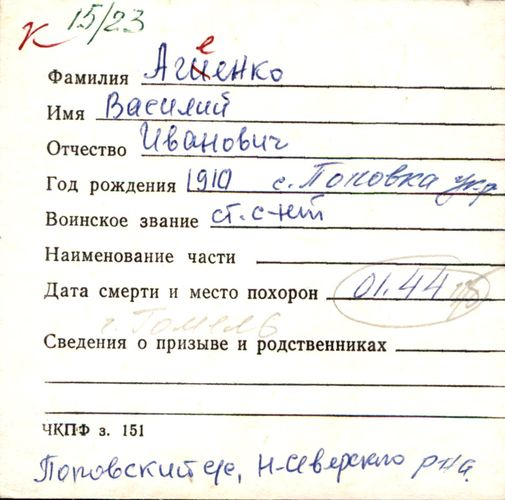 К 15/23
е
Фамилия Агиенко
Имя Василий
Отчество Иванович
Год рождения 1910 с. Поповка укр
Воинское звание ст. с-нт
Наименование части
Дата смерти и место похорон 01.44
г. Гомель
Сведения о призыве и родственниках
ЧКПФ з. 151
Поповский с/с, Н-Северского р-на